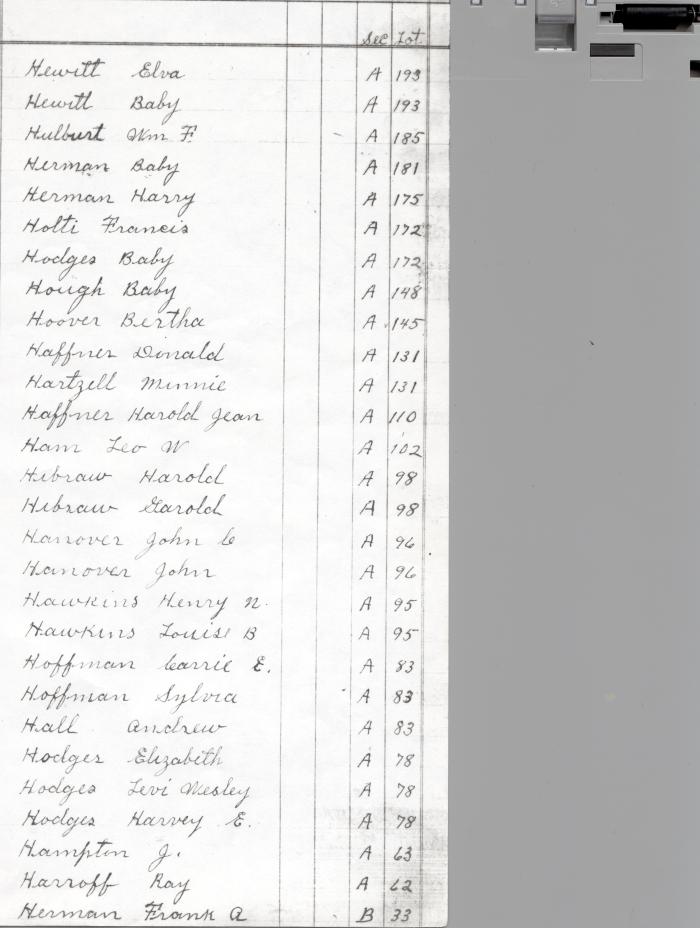 Sec Lot
Hewitt Elva A 193
Hewitt Baby A 193
Hulburt Wm F A 185
Herman Baby A 181
Herman Harry A 175
Holti Francis A 172
Hodges Baby A 172
Hough Baby A 148
Hoover Bertha A 145
Haffner Donald A 131
Hartzell Minnie A 131
Haffner Harold Jean A 110
Ham Leo W A 102
Hebraw Harold A 98
Hebraw Garold A 98
Hanover John C A 96
Hanover John A 96
Hawkins Henry N. A 95
Hawkins Louise B A 95
Hoffman Carrie E. A 83
Hoffman Sylvia A 83
Hall Andrew A 83
Hodges Elizabeth A 78
Hodges Levi Wesley A 78
Hodges Harvey E. A 78
Hampton J. A 63
Harroff Ray A 62
Herman Frank A B 33